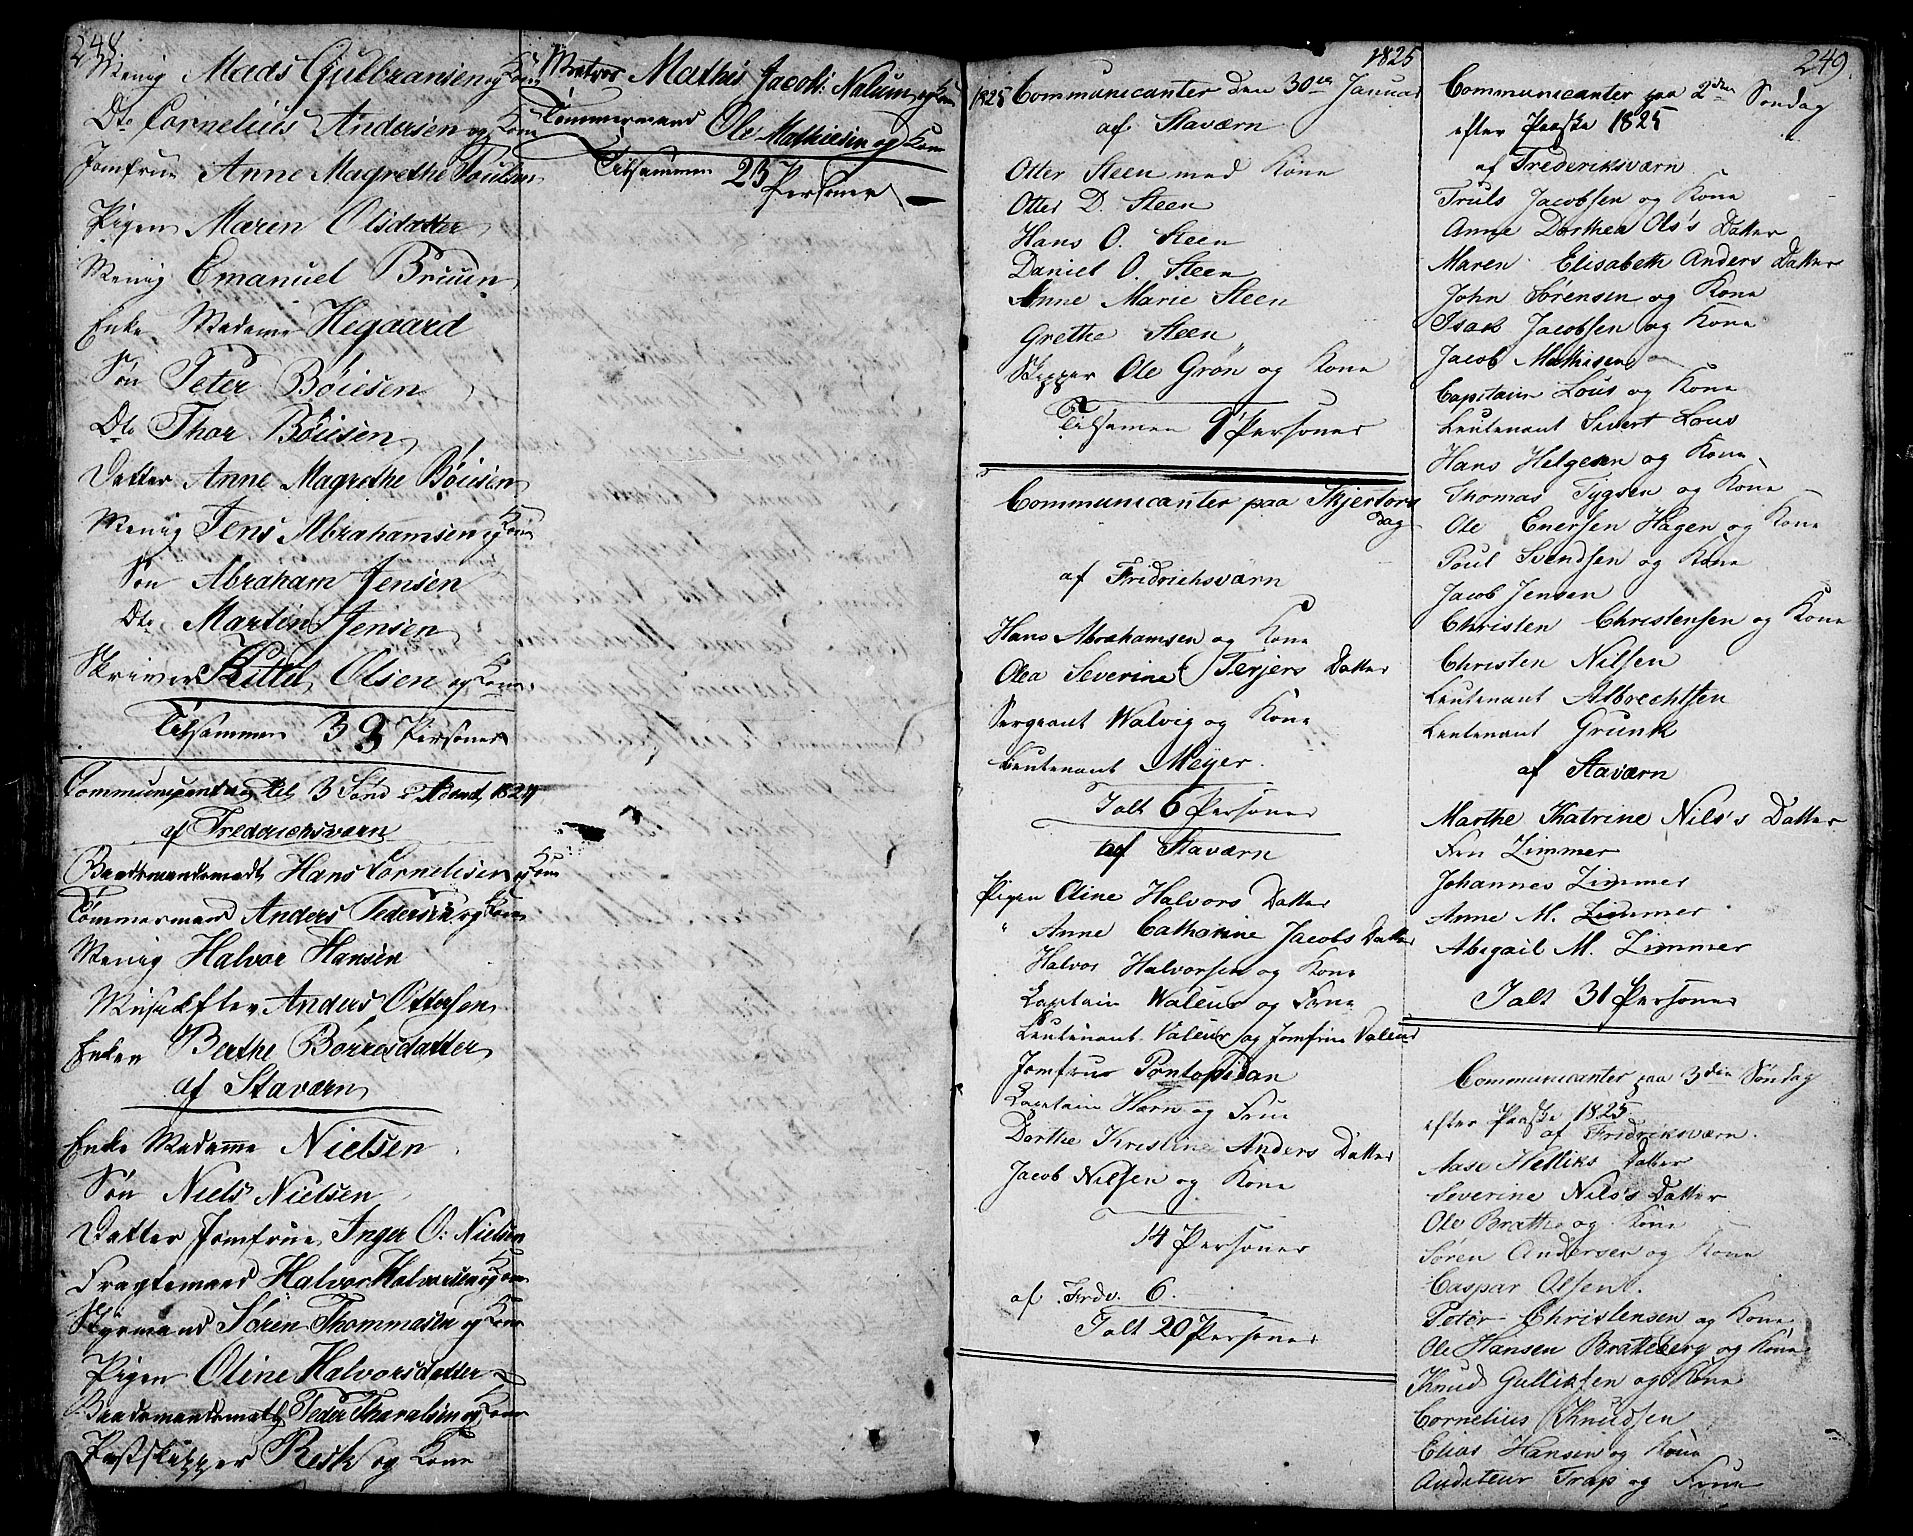 248.
Menig Mads Gulbransen og Kone
Dto Cornelius Andersen og Kone
Jomfrue Anne Magrethe Poulsen
Pigen Maren Olsdatter
Menig Emanuel Bruun
Enke Madame Hegaard
Søn Peter Bøiesen
Dto Thor Bøiesen
Datter Anne Magrethe Bøiesen
Menig Jens Abrahamsen og Kone
Søn Abraham Jensen
Dto Martin Jensen
Skriver Kittel Olsen og Kone
Tilsammen 33 Personer
3 Sønd. i Advent 1824
af Frederichsværn
Baadsmandsmadt Hans Cornelisen og Kone
Tømmermand Anders Pedersen og Kone
Menig Halvor Hansen
Anders Ottersen
Enken Berthe Børresdatter
af Staværn
Enke Madamme Nielsen
Søn Niels Nielsen
Datter Jomfrue Inger O: Nielsen
Fragtemand Halvor Halvorsen og Kone
Styrmand Søren Thommasen og Kone
Pigen Oline Halvorsdatter
Baadsmandsmath Peder Tharalsen og Kone
Postskipper Resk og Kone
Matros Mathis Jacobs: Nalum og Kone
Tømmermand Ole Mathiesen og Kone
Tilsammen 23 Personer
1825
1825 Communicanter den 30te Januar
af Staværn
Otter Steen med Kone
Otter D. Steen
Hans O. Steen
Daniel O. Steen
Anne Marie Steen
Grethe Steen
Skipper Ole Grøn og Kone
Tilsamen 9 Personer
Communicanter paa Skjertors
dag
af Fridrichsværn
Hans Abrahamsen og Kone
Olea Severine Terjers Datter
Sergeant Walvig og Kone
Lieutenant Meyer.
Ialt 6 Personer
af Staværn
Pigen Oline Halvors Datter
" Anne Catharine Jacobs Datter
Halvor Halvorsen og Kone
Captain Waleur og Frue
Leutenant Valeur og Jomfrue Valeur
Jomfrue Pontopidan
Captain Harn og Frue
Dorthe Kristine Anders Datter
Jacob Nilsen og Kone
14 Personer
af Frdv. 6.
Ialt 20 Personer
249.
Communicanter paa 2den Søndag
efter Paaske 1825
af Frederiksværn
Truls Jacobsen og Kone
Anne Dorthea Ols's Datter
Maren Elisabeth Anders Datter
John Sørensen og Kone
Isak Jacobsen og Kone
Jacob Mathisen
Capitain Lous og Kone
Leutenant Sivert Lous
Hans Helgesen og Kone
Thomas Tygsen og Kone
Ole Enersen Hagen og Kone
Poul Svendsen og Kone
Jacob Jensen
Christen Christensen og Kone
Christen Nilsen
Leutenant Albrechtsen
Leutenant Grunk
af Staværn
Marthe Katrine Nils's Datter
Fru Zimmer
Johannes Zimmer
Anne M. Zimmer
Abigail M. Zimmer
Ialt 31 Personer
Communicanter paa 3die Søndag
efter Paaske 1825
af Fridriksværn.
Aase Helliks Datter
Severine Nils's Datter
Ole Brathe og Kone
Søren Andersen og Kone
Caspar Olsen.
Peter Christensen og Kone
Ole Hansen Brateberg og Kone
Knud Gulliksen og Kone
Cornelius Knudsen
Elias Hansen og Kone
Auditeur Trap og Frue